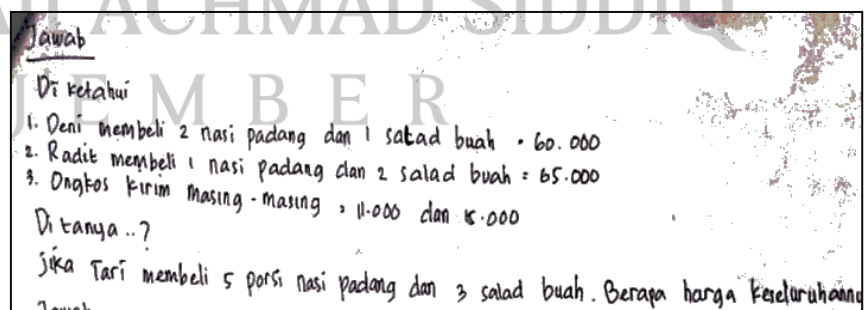 ACHMAD SIDDIQ
Jawab
Di ketahui
JEMBER
1. Deni membeli 2 nasi padang dan 1 salad buah = 60.000
2. Radit membeli 1 nasi padang dan 2 salad buah = 65.000
3. Ongkos kirim masing-masing = 11.000 dan 15.000
Di tanya..?
jika Tari membeli 5 porsi nasi padang dan 3 salad buah. Berapa harga keseluruhann
Jawab